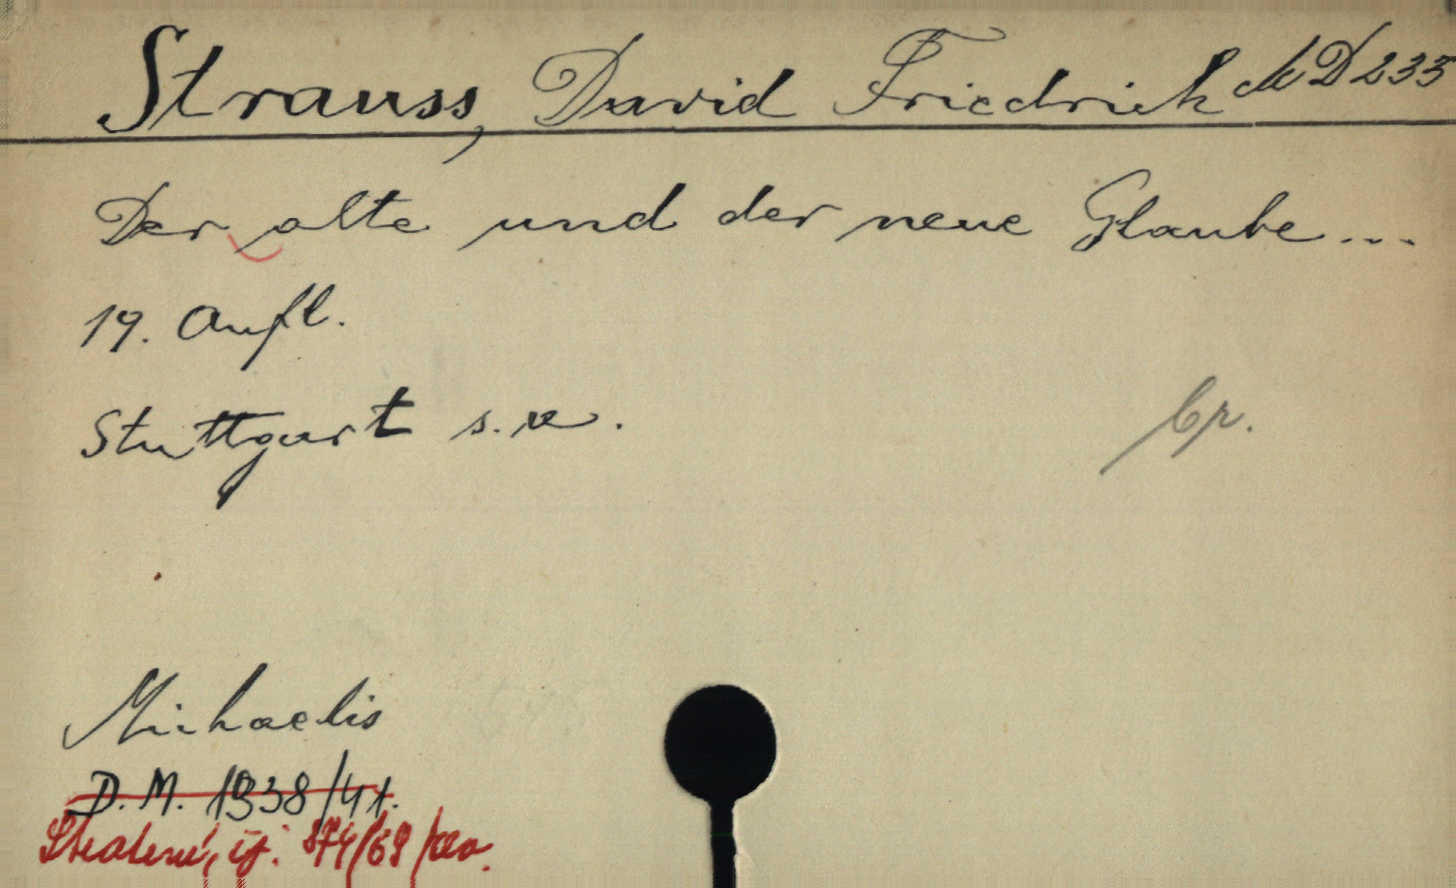 Strauss, David Friedrich M D 235
Der alte und der neue Glaube...
19. Aufl.
Stuttgart s.a.
Michaelis
D. M. 1938/41.
874/69